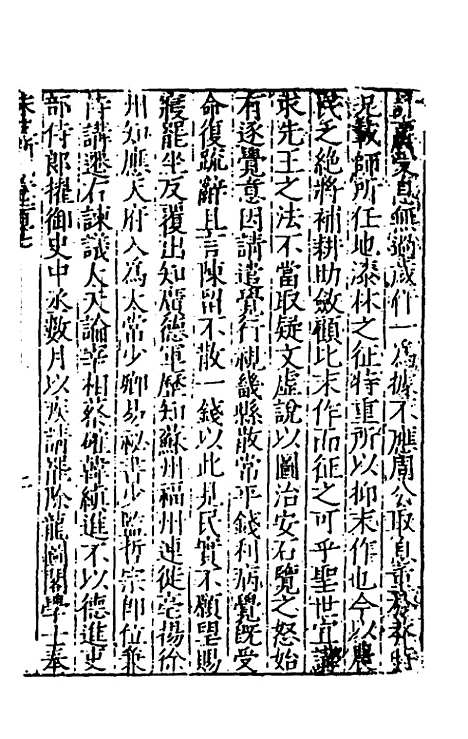 計贏受息無過歲什一為據不應周公取息重於莽時
況載師所任地漆林之征特重所以抑末作也今以農
民乏絕將補耕助斂顧比末作而征之可乎聖世宜講
求先王之法不當取疑文虛說以圖治安石覽之怒始
有逐覺意因請遣覺行視畿縣散常平錢利病覺既受
命復疏辭且言陳留不散一錢以此見民實不願望賜
寢罷坐反覆出知廣德軍歷知蘇州福州連徙亳揚徐
州知應天府入為太常少卿易秘書少監哲宗即位兼
侍講遷右諫議大夫論宰相蔡確韓縝進不以德進吏
部侍郎擢御史中丞數月以疾請罷除龍圖閣學士奉